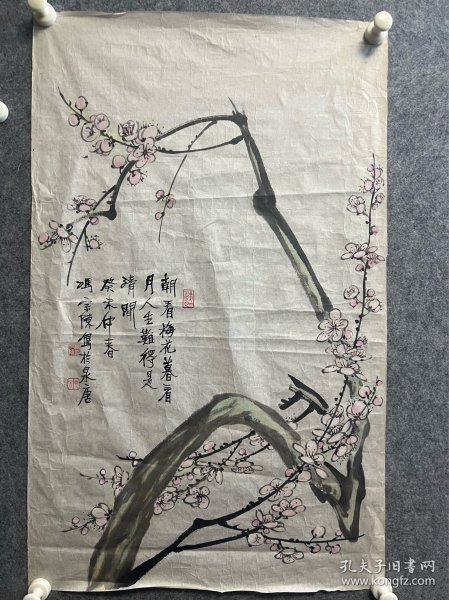 朝看梅花暮看
月人生難得是
清閒
癸未仲春
馮宗陳寫於泉唐
孔夫子旧书网
www.kongfz.com